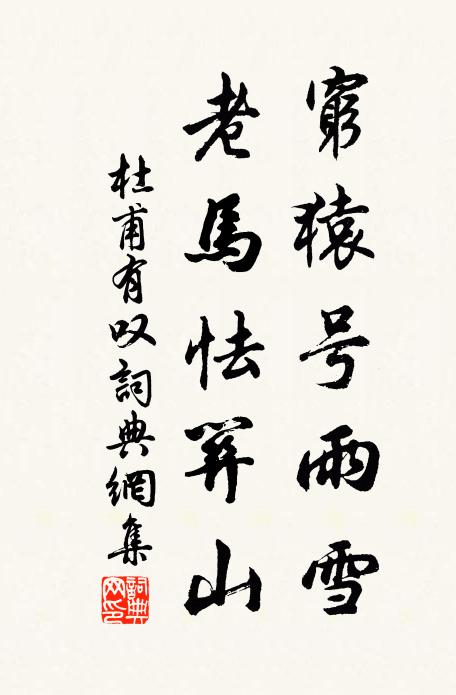 窮猿号雨雪
老馬怯關山
杜甫有叹詞典網集
詞典
网印